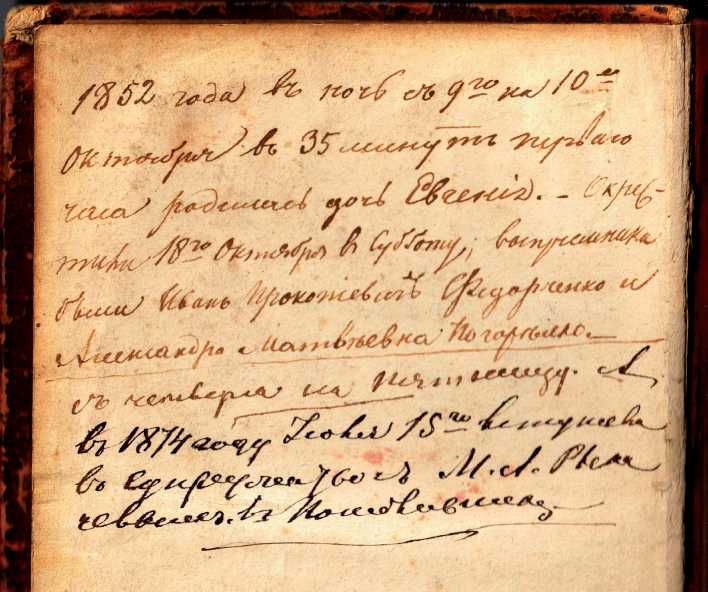 1852 года въ ночь съ 9го на 10ое
Октября въ 35 минутъ перваго
часа родилась дочь Евгенія. – Окрес-
тили 18го Октября в Субботу, воспріемники
были Иванъ Прокофіевичъ Федорченко и
Александра Матвѣевна Погорѣлко.
съ четверга на Пятницу. А
въ 1874 году 15го вступила
въ М. А.
въ